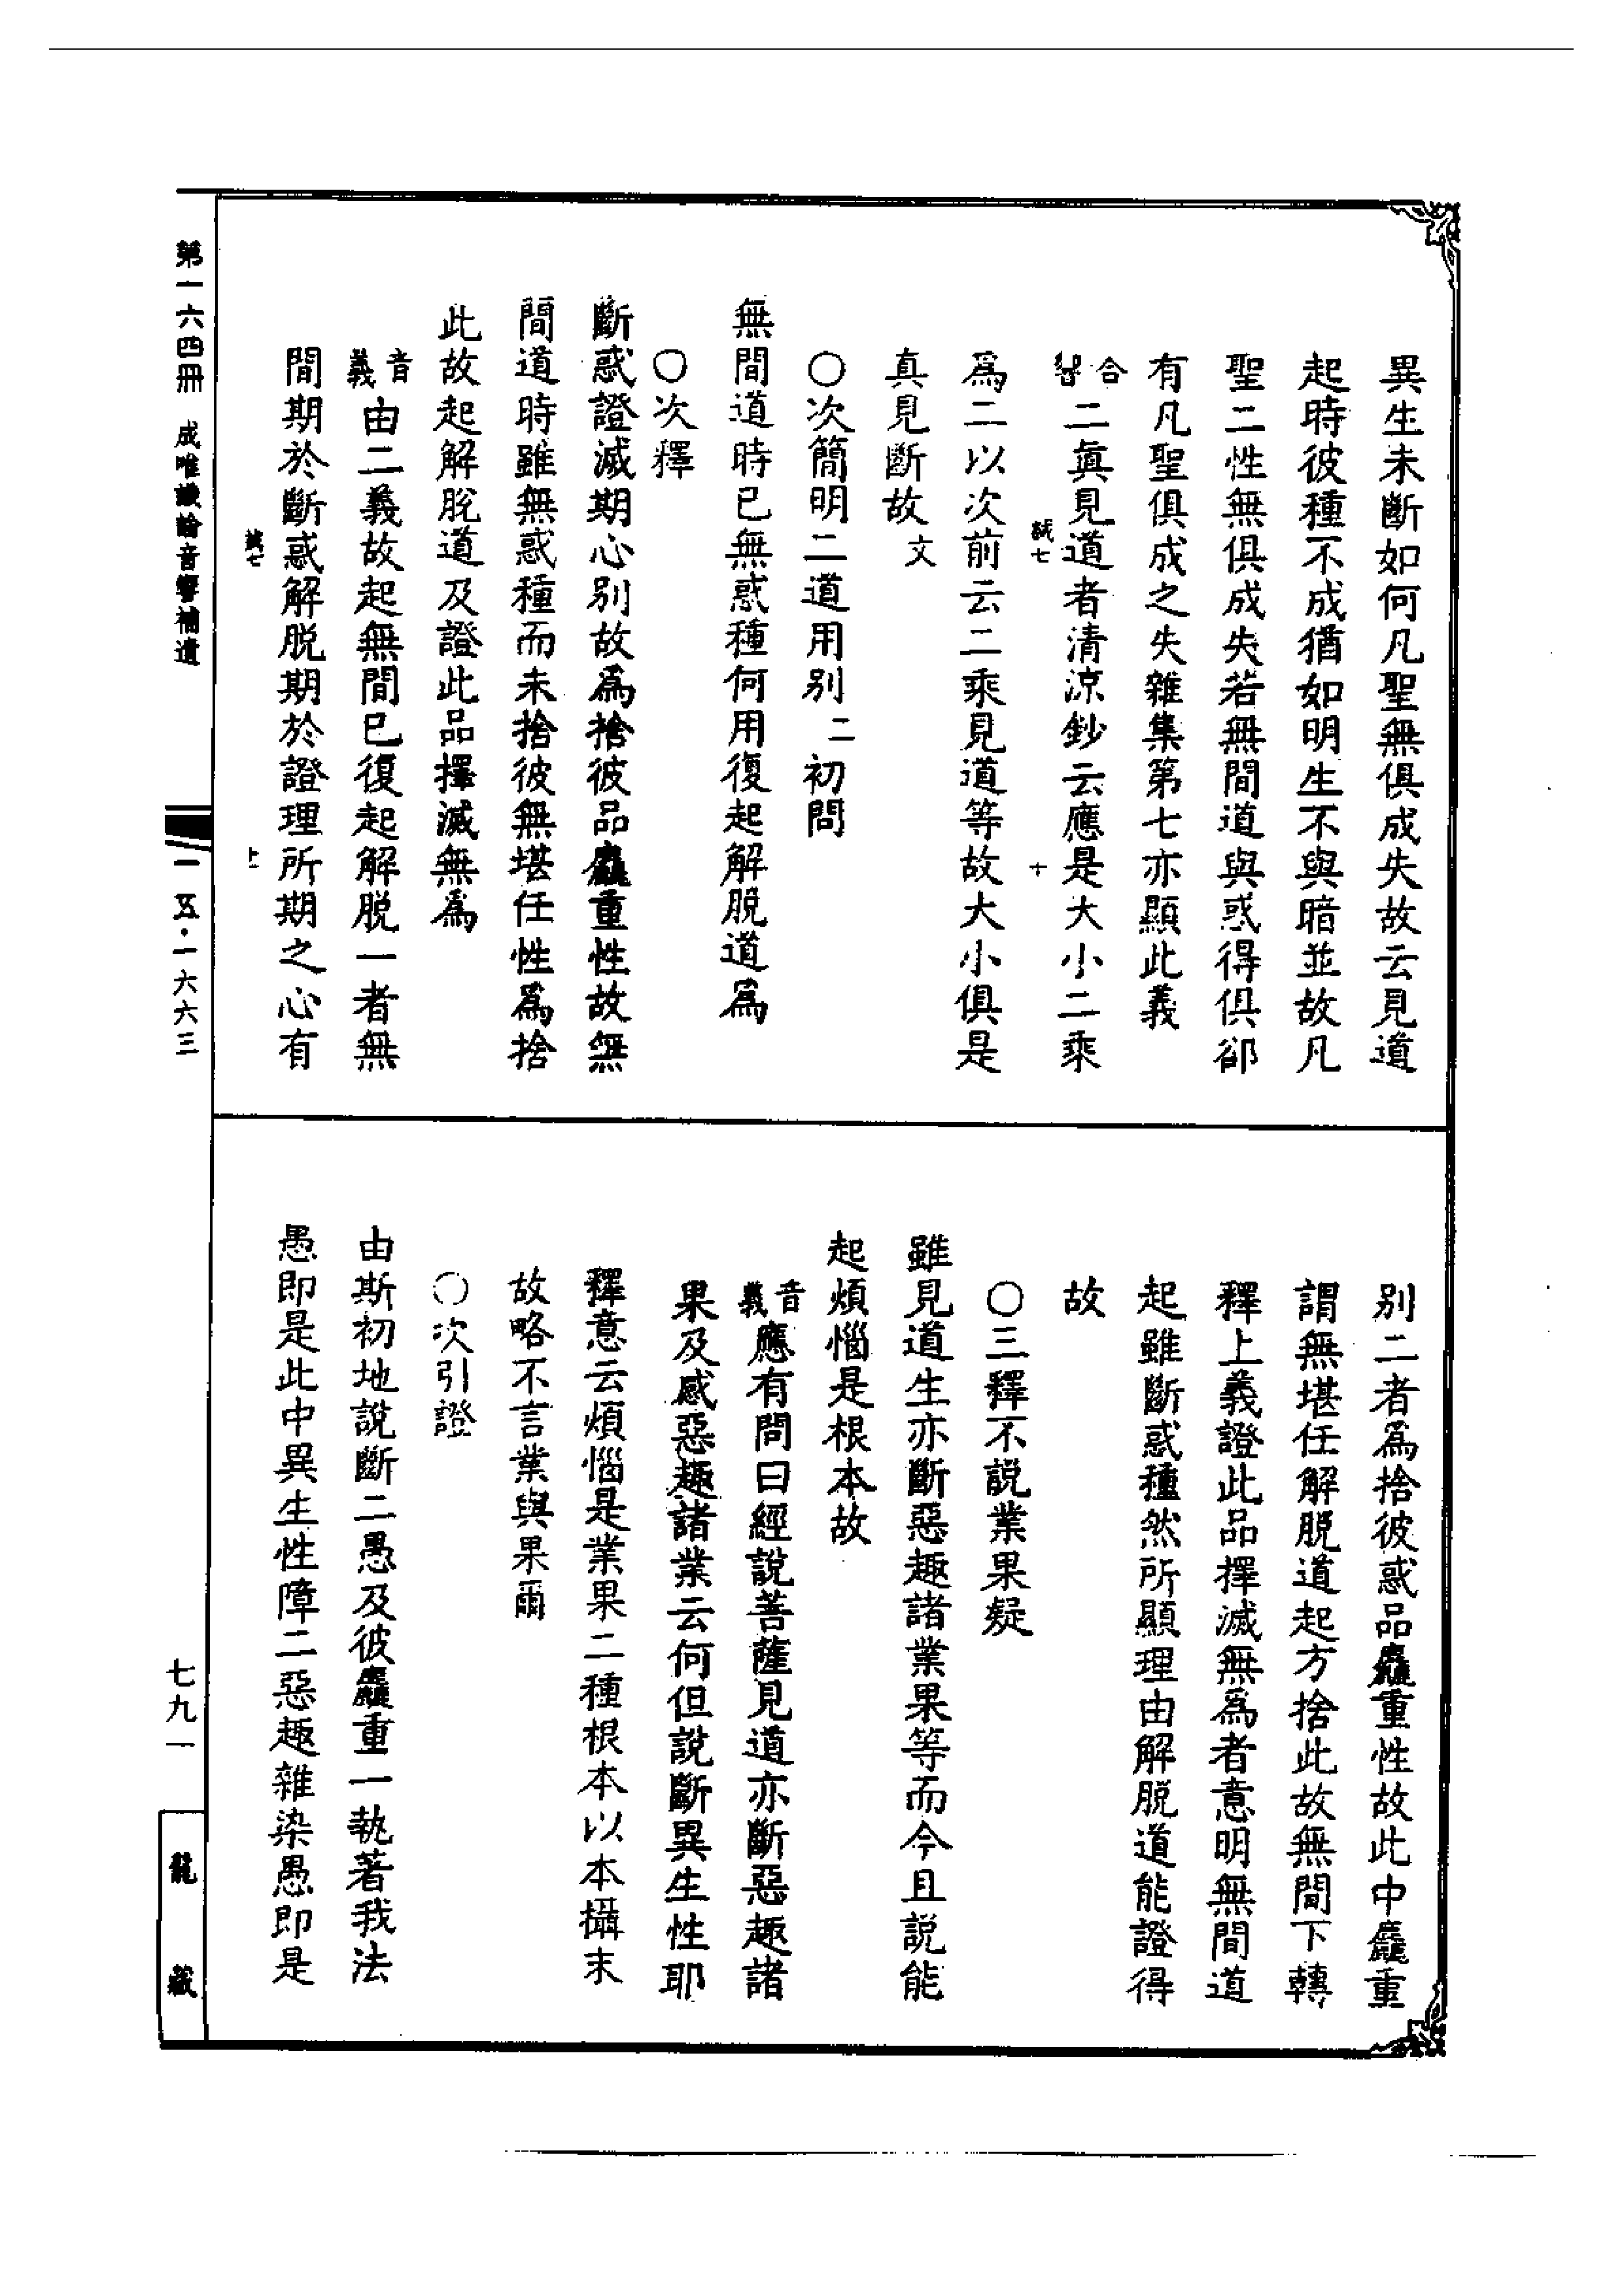 異生未斷如何凡聖無俱成失故云見道
起時彼種不成猶如明生不與暗並故凡
聖二性無俱成失若無間道與惑得俱卻
有凡聖俱成之失雜集第七亦顯此義
合響二眞見道者清涼鈔云應是大小二乘
為二以次前云二乘見道等故大小俱是
真見斷故文
〇次簡明二道用別二初問
無間道時已無惑種何用復起解脫道為
〇次釋
斷惑證滅期心別故為捨彼品麤重性故無
間道時雖無惑種而未捨彼無堪任性為捨
此故起解脫道及證此品擇滅無為
音義由二義故起無間已復起解脫一者無
間期於斷惑解脫期於證理所期之心有
別二者為捨彼惑品麤重性故此中麤重
謂無堪任解脫道起方捨此故無間下轉
釋上義證此品擇滅無為者意明無間道
起雖斷惑種然所顯理由解脫道能證得
故
〇三釋不說業果疑
雖見道生亦斷惡趣諸業果等而今且說能
起煩惱是根本故
音義應有問曰經說菩薩見道亦斷惡趣諸
果及感惡趣諸業云何但說斷異生性耶
釋意云煩惱是業果二種根本以本攝末
故略不言業與果爾
〇次引證
由斯初地說斷二愚及彼麤重一執著我法
愚即是此中異生性障二惡趣雜染愚即是
第一六四冊 成唯識論音響補遺
一五·一六六三
七九一
龍藏